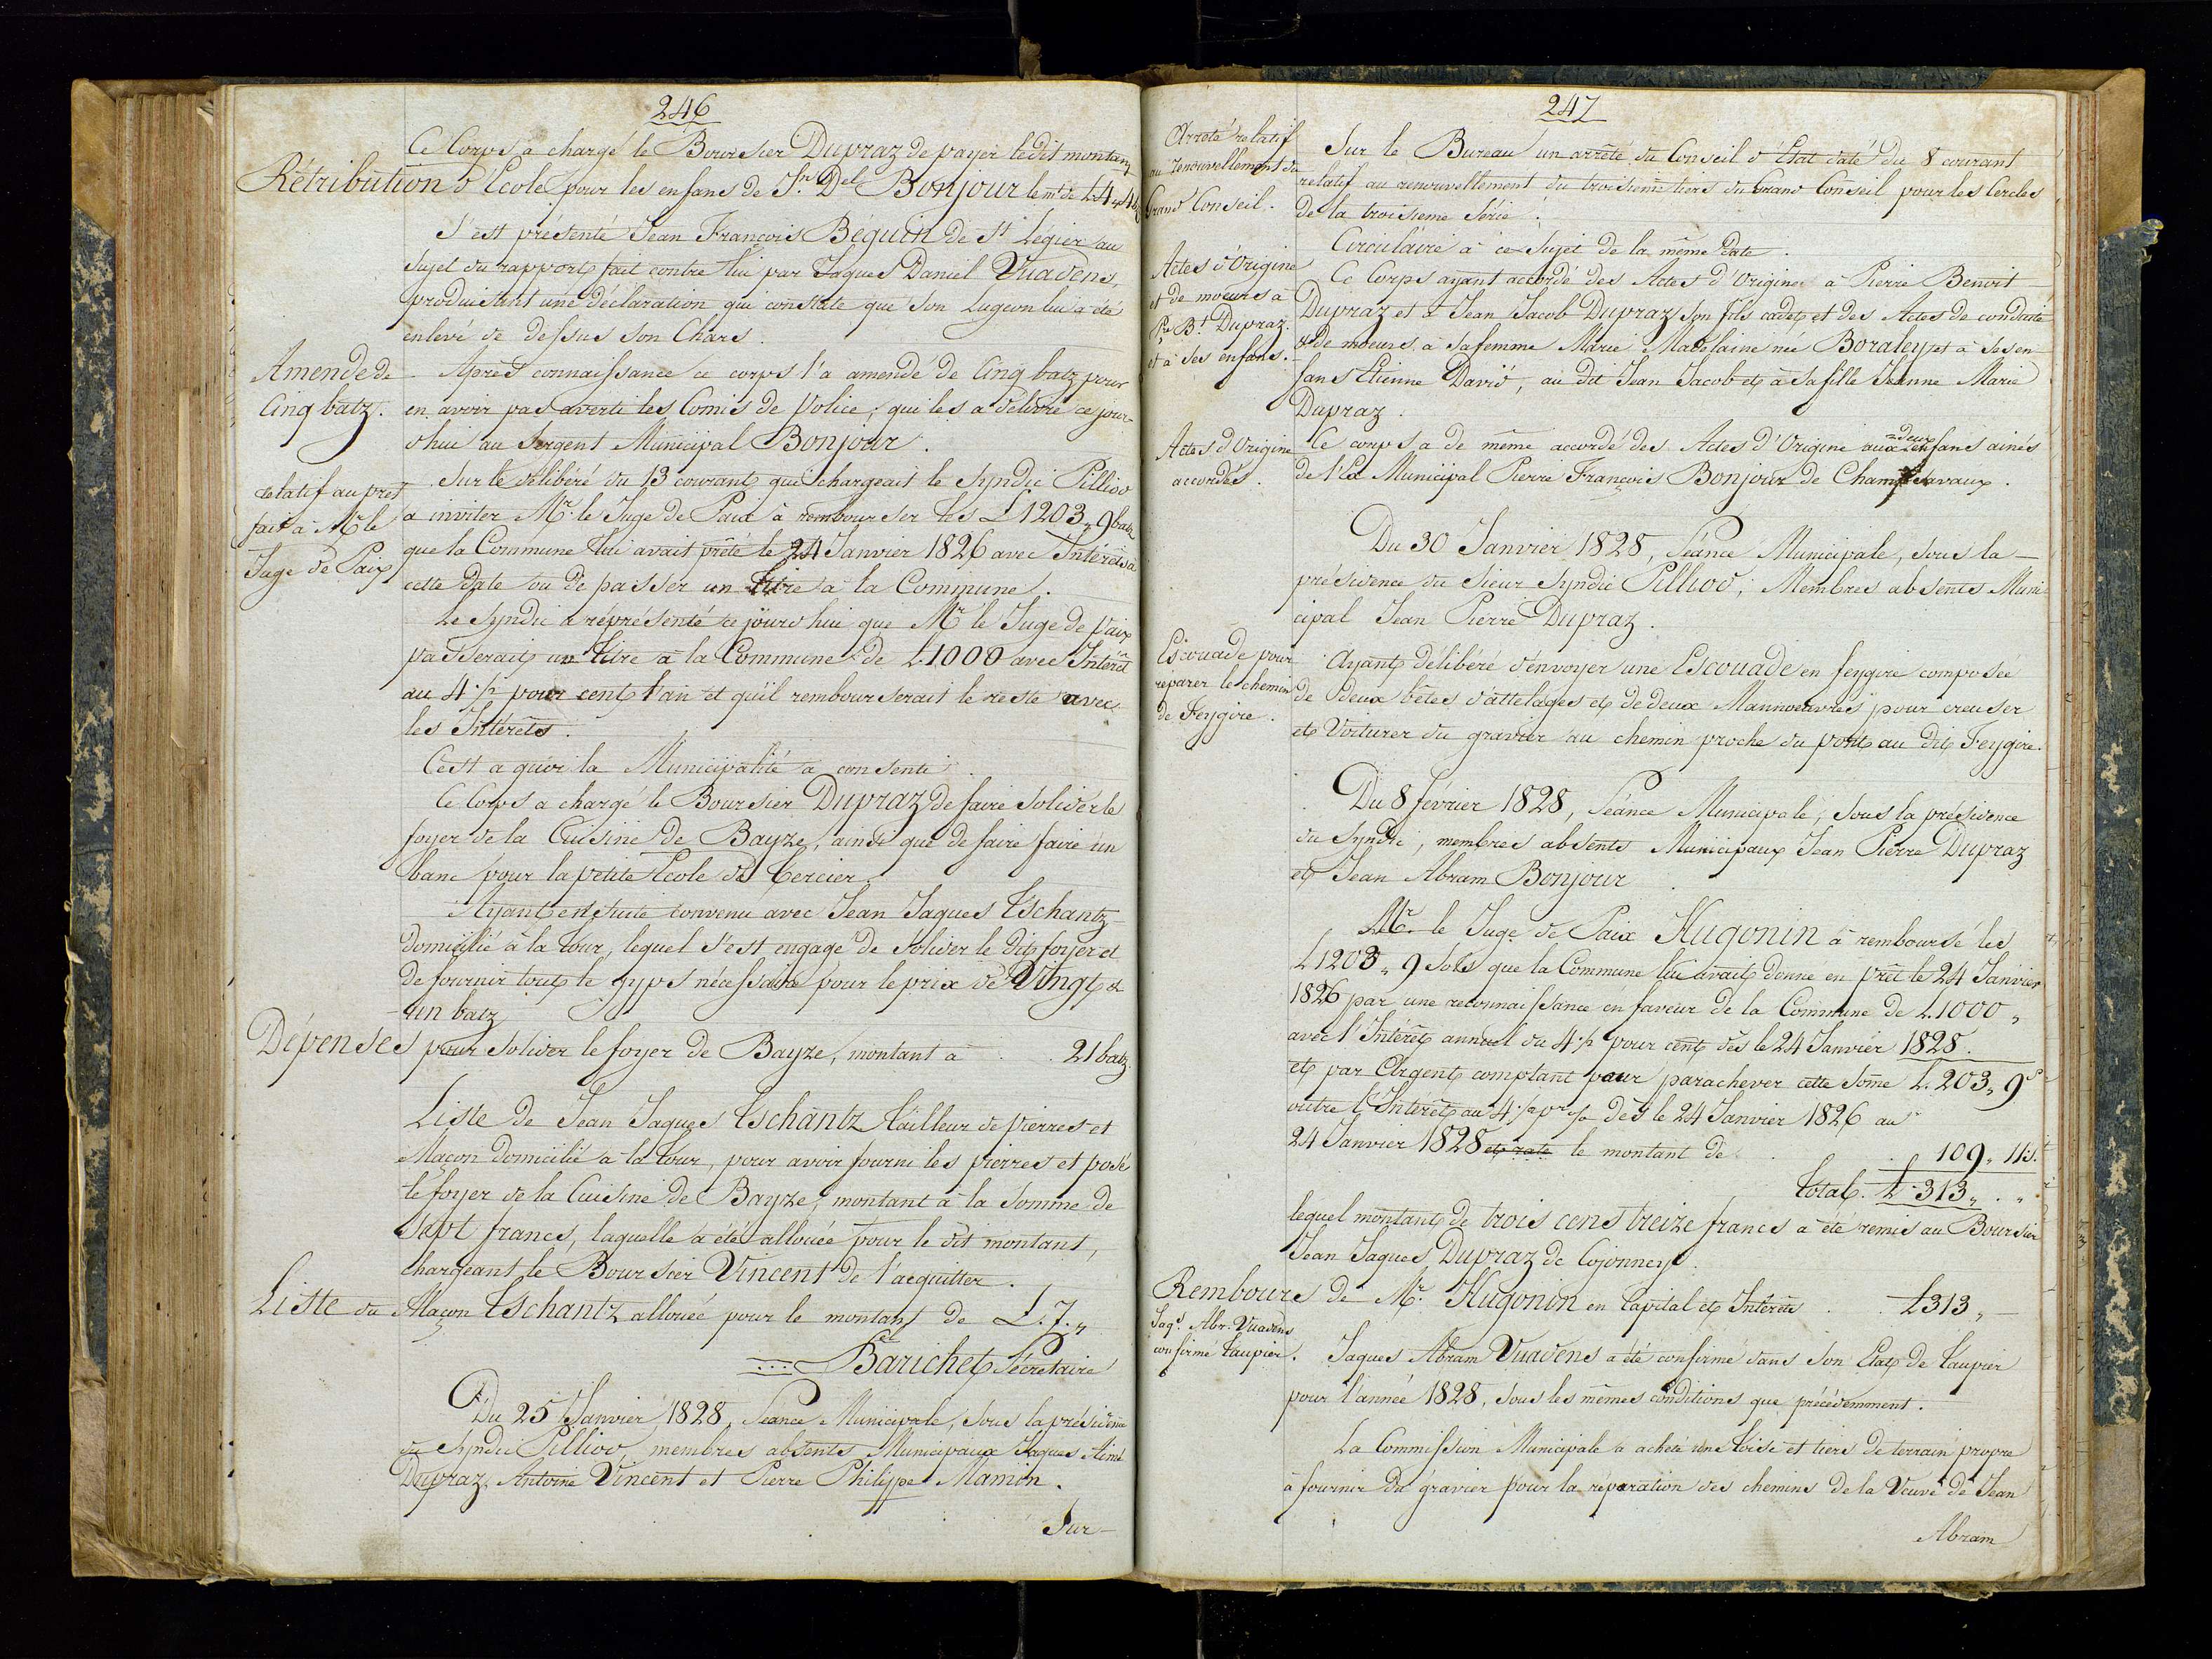 246
Ce Corps a chargé le Boursier Dupraz de payer ledit montant
Rétribution d'Ecole pour les enfans de Jn. Del Bonjour le mt. de L 4 „ 4 b
S'est présenté Jean François Béguin de St Légier au
sujet du rapport fait contre lui par Jaques Daniel Vuadens,
produisant une déclaration qui constate que son Lugeon lui a été
enlevé de dessus son Chars.
Amende de
Cinq batz.
Après connaissance ce corps l'a amendé de Cinq batz pour
en avoir pas averti les Comis de Police, qui les a délivré ce jour-
d'hui au Sergent Municipal Bonjour.
relatif au pret
fait à Mr le
Juge de Paix
Sur le délibéré du 13 courant qui chargeait le Syndic Pilliod
a inviter Mr. le Juge de Paix à rembourser les L 1203 „ 9 batz
que la Commune lui avait prêté le 24 Janvier 1826 avec Intérêts à
cette date ou de passer un titre à la Commune.
Le Syndic a réprésenté ce jourd'hui que Mr le Juge de Paix
passerait un titre à la Commune de L. 1000 avec Intérêt
au 4 p pour cent l'an et qu'il rembourserait le reste avec
les Intérêts.
C'est a quoi la Municipalité a consenti
Ce Corps a chargé le Boursier Dupraz de faire solider le
foyer de la Cuisine de Bayze, ainsi que de faire faire un
banc pour la petite Ecole de Cercier.
Ayant ensuite convenu avec Jean Jaques Tschantz
domicilié à la Tour, lequel s'est engagé de solider le dit foyer et
de fournir tout le gyps nécessaire pour le prix de Vingt &
un batz
Dépenses pour solider le foyer de Bayze, montant à . . 21 batz.
Liste de Jean Jaques Tschantz Tailleur de pierres et
Maçon domicilié à la Tour, pour avoir fourni les pierres et posé
le foyer de la Cuisine de Bayze, montant à la somme de
sept francs, laquelle a été allouée pour le dit montant,
chargeant le Boursier Vincent de l'acquitter.
Liste du Maçon Tschantz allouée pour le montant de L. 7. „
Barichet Sécretaire
Du 25 Janvier 1828, Séance Municipale, sous la présidence
du Syndic Pilliod, membres absents Municipaux Jaques Aimé
Dupraz, Antoine Vincent et Pierre Philippe Mamin.
Sur
247
Arreté relatif
au renouvellement du
Grand Conseil.
Sur le Bureau un arrêté du Conseil d'Etat daté du 8 courant
relatif au renouvellement du troisieme tiers du Grand Conseil pour les Cercles
de la troisieme Série.
Circulaire à ce Sujet de la même date.
Actes d'Origine
et de moeurs à
Pre Bt Dupraz.
et à ses enfans.
Ce Corps ayant accordé des Actes d'Origine à Pierre Benoit
Dupraz et à Jean Jacob Dupraz son fils cadet et des Actes de conduite
& de moeurs à sa femme Marie Madelaine née Boraley et à ses en
fans Etienne David, au dit Jean Jacob et à sa fille Jeanne Marie
Dupraz.
Actes d'Origine
accordés.
Ce corps a de même accordé des Actes d'Origine aux deux enfans ainés
de l'Ex Municipal Pierre François Bonjour de Champsavaux.
Du 30 Janvier 1828, Séance Municipale, sous la
présidence du Sieur Syndic Pilliod, Membres absents Muni-
cipal Jean Pierre Dupraz.
Escouade pour
reparer le chemin
de Feygire.
Ayant délibéré d'envoyer une Escouade en feygire composée
de deux bêtes d'attelages et de deux Mannoeuvres pour creuser
et Voiturer du gravier au chemin proche du pont au dit Feygire.
Du 8 février 1828, Séance Municipale, sous la présidence
du Syndic, membres absents Municipaux Jean Pierre Dupraz
et Jean Abram Bonjour.
Mr. le Juge de Paix Hugonin a remboursé les
L 1203 „ 9 sols que la Commune lui avait donné en prêt le 24 Janvier
1826 par une reconnaissance en faveur de la Commune de L. 1000 „
avec l'Intérêt annuel du 4 p pour cent dès le 24 Janvier 1828.
et par Argent comptant pour parachever cette some L. 203 „ 9 s
outre l'Intérêt au 4 1/2 pr % dès le 24 Janvier 1826 au
24 Janvier 1828 et rate le montant de . . 109 „ 11 s.
total. L 313 „ . „
lequel montant de trois cens treize francs a été remis au Boursier
Jean Jaques Dupraz de Cojonney.
Rembours de Mr. Hugonin en Capital et Intérêts . . L 313 „ —
Jaqs. Abr. Vuadens
confirmé taupier.
Jaques Abram Vuadens a été confirmé dans son Etat de taupier
pour l'année 1828, sous les mêmes conditions que précédemment.
La Commission Municipale a acheté une toise et tiers de terrain propre
à fournir du gravier pour la réparation des chemins de la Veuve de Jean
Abram